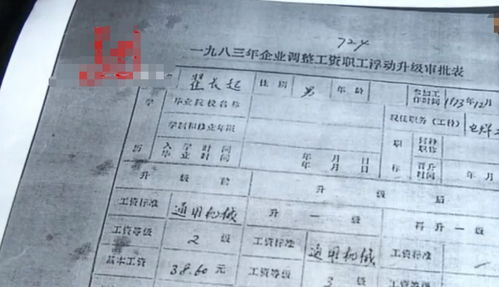 724
一九八三年企业调整工资职工浮动升级审批表
翟长起 性别 男 年龄 参加工作时间 1973.12月
学历 毕业院校名称 现任职务(工种) 电焊
学制和修业年限 职称
入学时间 年 月 日
毕业时间 年 月 日 晋升时间
升级前 升级后
工资标准 通用机械 升一级 再升一级
工资等级 2级 工资标准 通用机械 工资标准
基本工资 38.60元 工资等级 3级 工资等级